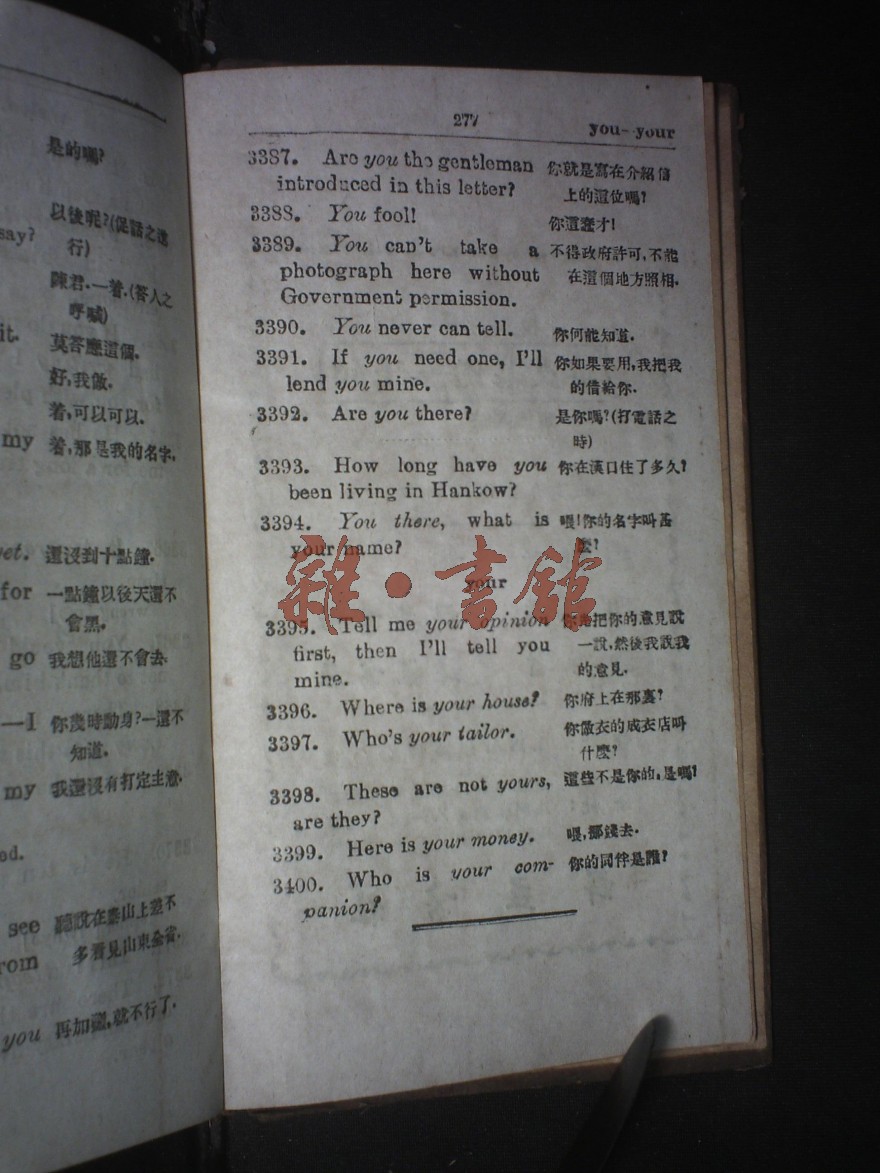 是的嗎?
以後呢?(促話之進
say?
行)
陳君.一着.(答人之
呼喊)
it.
莫答應這個.
好,我做.
着,可以可以.
my 着,那是我的名字.
yet. 還沒到十點鐘.
for 一點鐘以後天還不
會黑.
go 我想他還不會去.
—I 你幾時動身?一還不
知道.
my 我還沒有打定主意.
ed.
see 聽說在泰山上差不
rom 多看見山東全省.
you 再加,就不行了.
277 you--your
3387. Are you the gentleman 你就是寫在介紹信
introduced in this letter? 上的這位嗎?
3388. You fool! 你這蠢才!
3389. You can't take a 不得政府許可,不能
photograph here without 在這個地方照相.
Government permission.
3390. You never can tell. 你何能知道.
3391. If you need one, I'll 你如果要用,我把我
lend you mine. 的借給你.
3392. Are you there? 是你嗎?(打電話之
時)
3393. How long have you 你在漢口住了多久?
been living in Hankow?
3394. You there, what is 喂!你的名字叫甚
your name? 麼?
your
3395. Tell me your opinion 你先把你的意見說
first, then I'll tell you 一說,然後我說我
mine. 的意見.
3396. Where is your house? 你府上在那裏?
3397. Who's your tailor. 你做衣的成衣店叫
什麼?
3398. These are not yours, 這些不是你的,是嗎?
are they?
3399. Here is your money. 喂,那錢去.
3400. Who is your com- 你的同伴是誰?
panion?
雜·書館